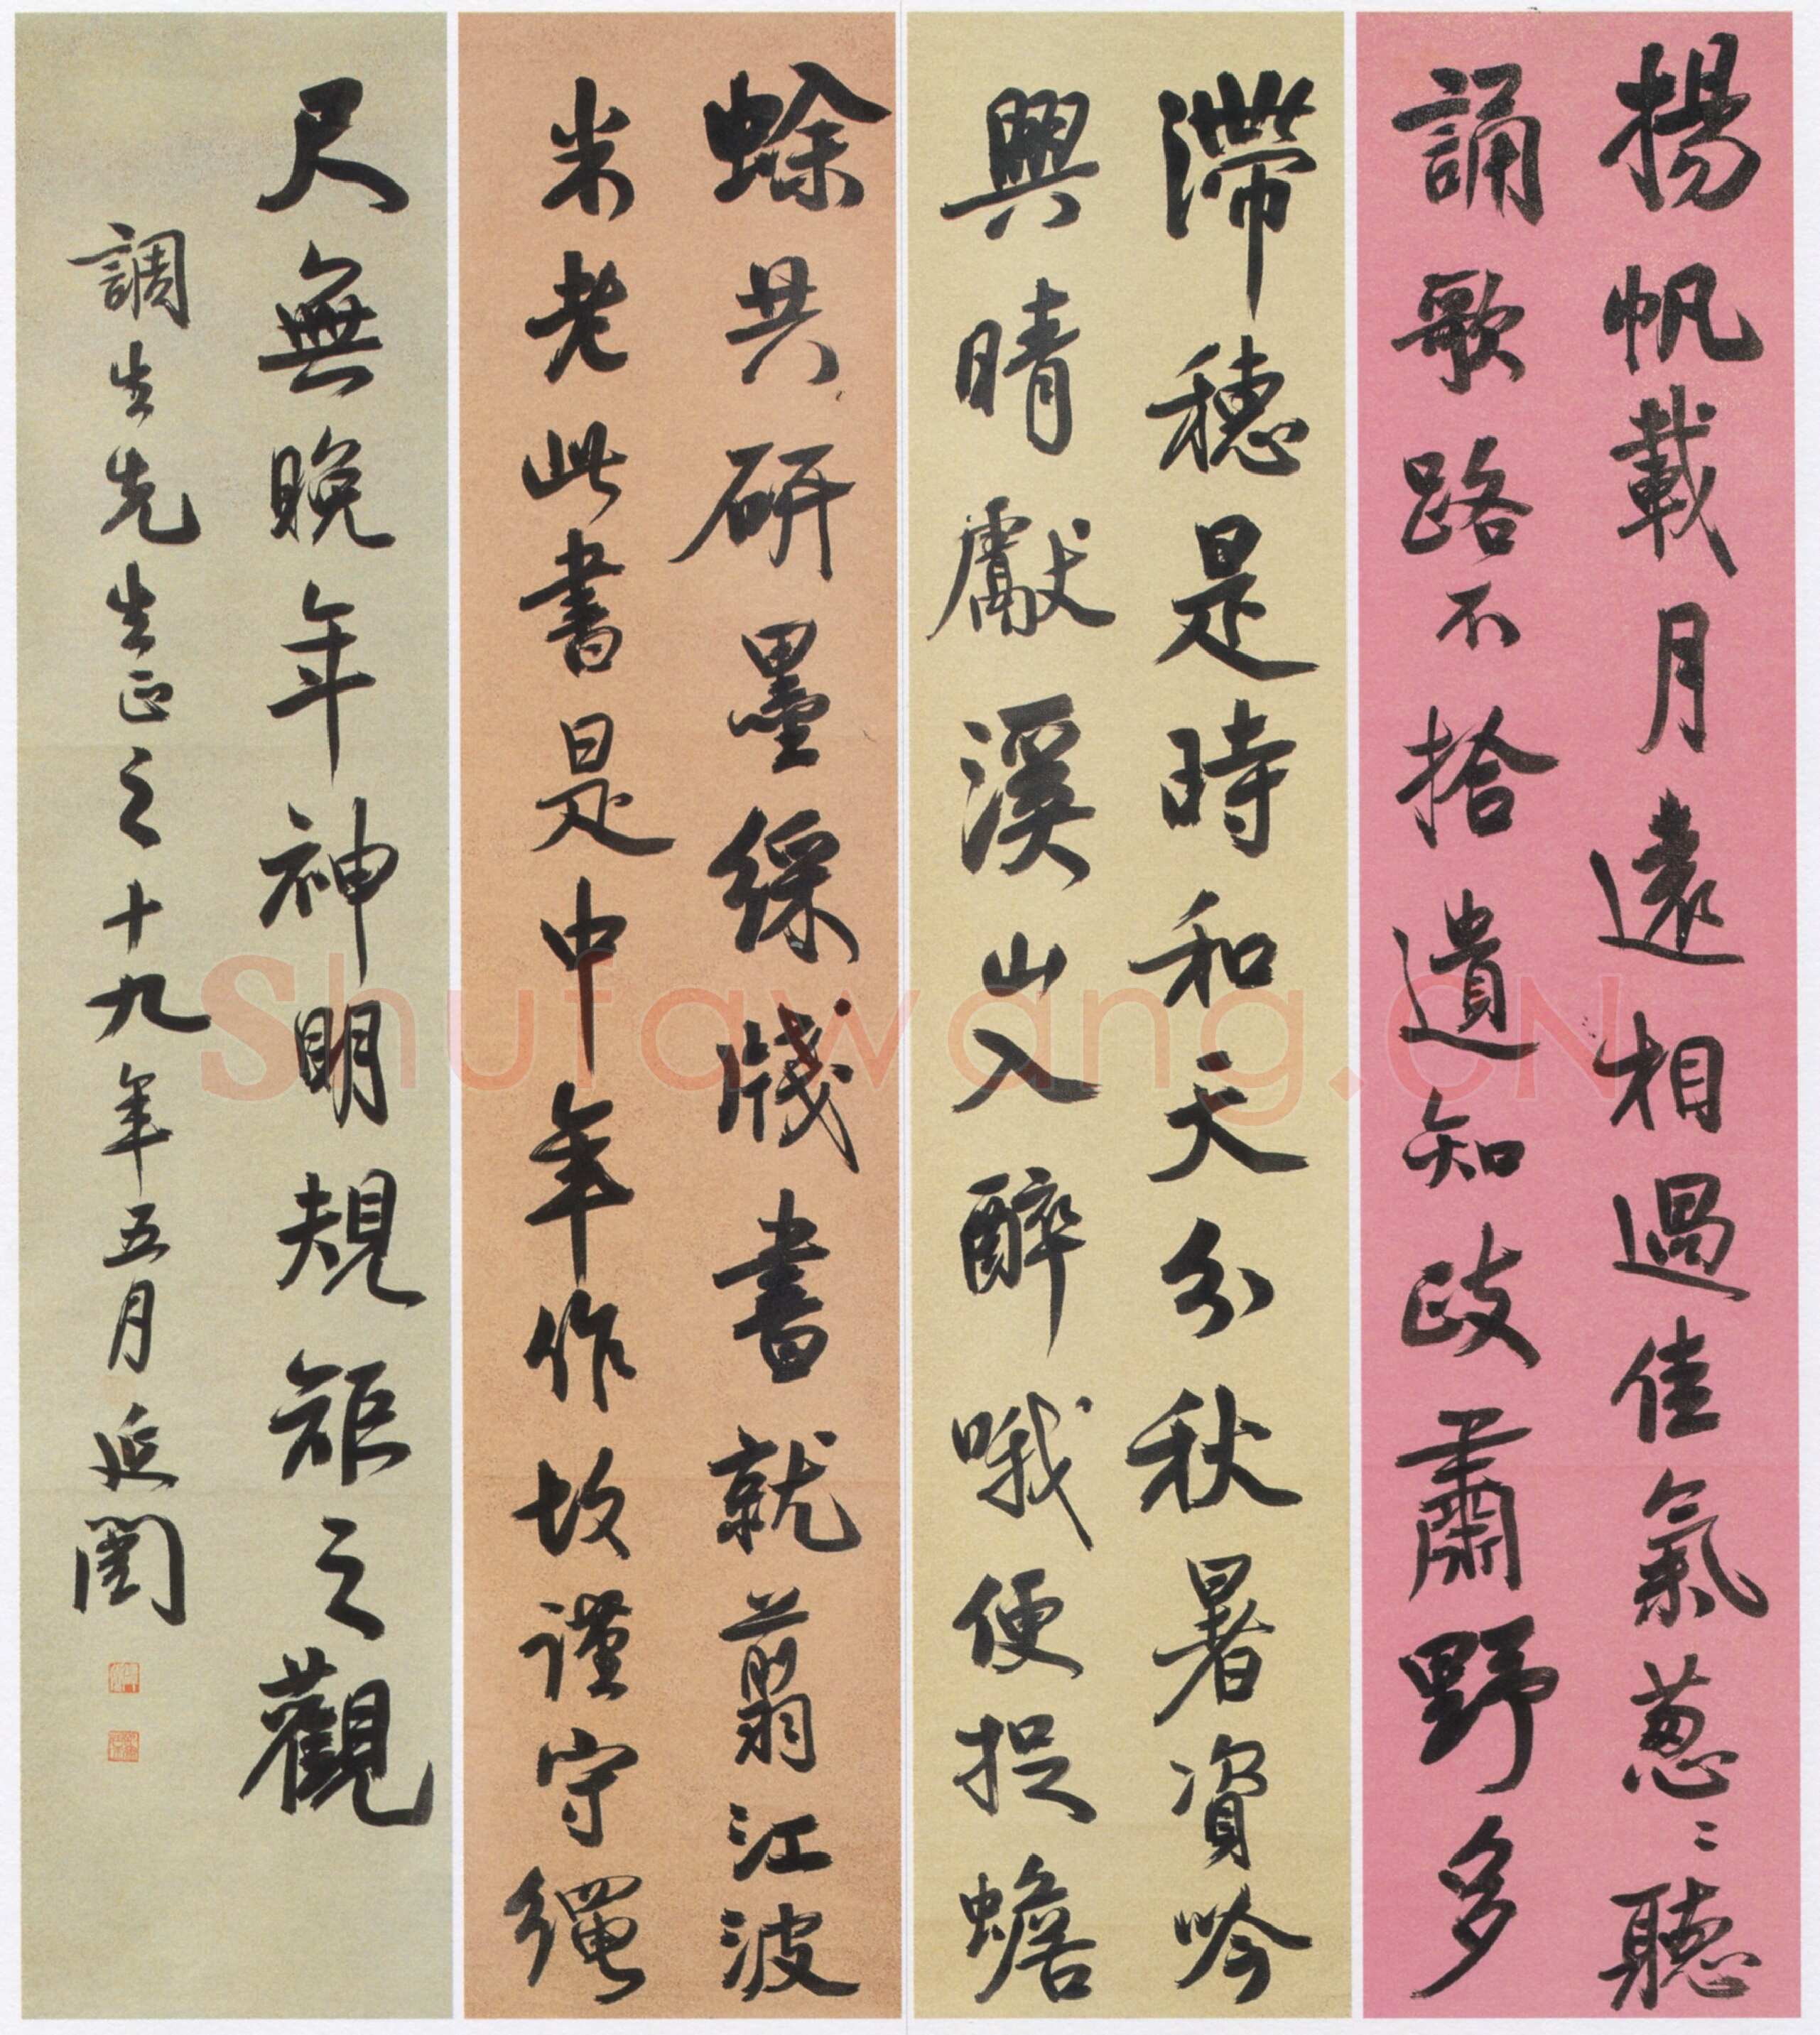 揚帆載月遠相過佳氣葱〻聽
誦歌路不捨遺知政肅野多
滯穗是時和天分秋暑資吟
興晴獻溪山入醉哦便捉蟾
蜍共研墨綵牋書就翦江波
米老此書是中年作故謹守繩
尺無晚年神明規矩之觀
調生先生正之十九年五月延闓
Shufawang.CN